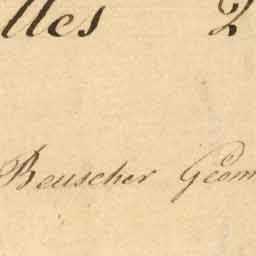 lles 2
Beuscher Géom